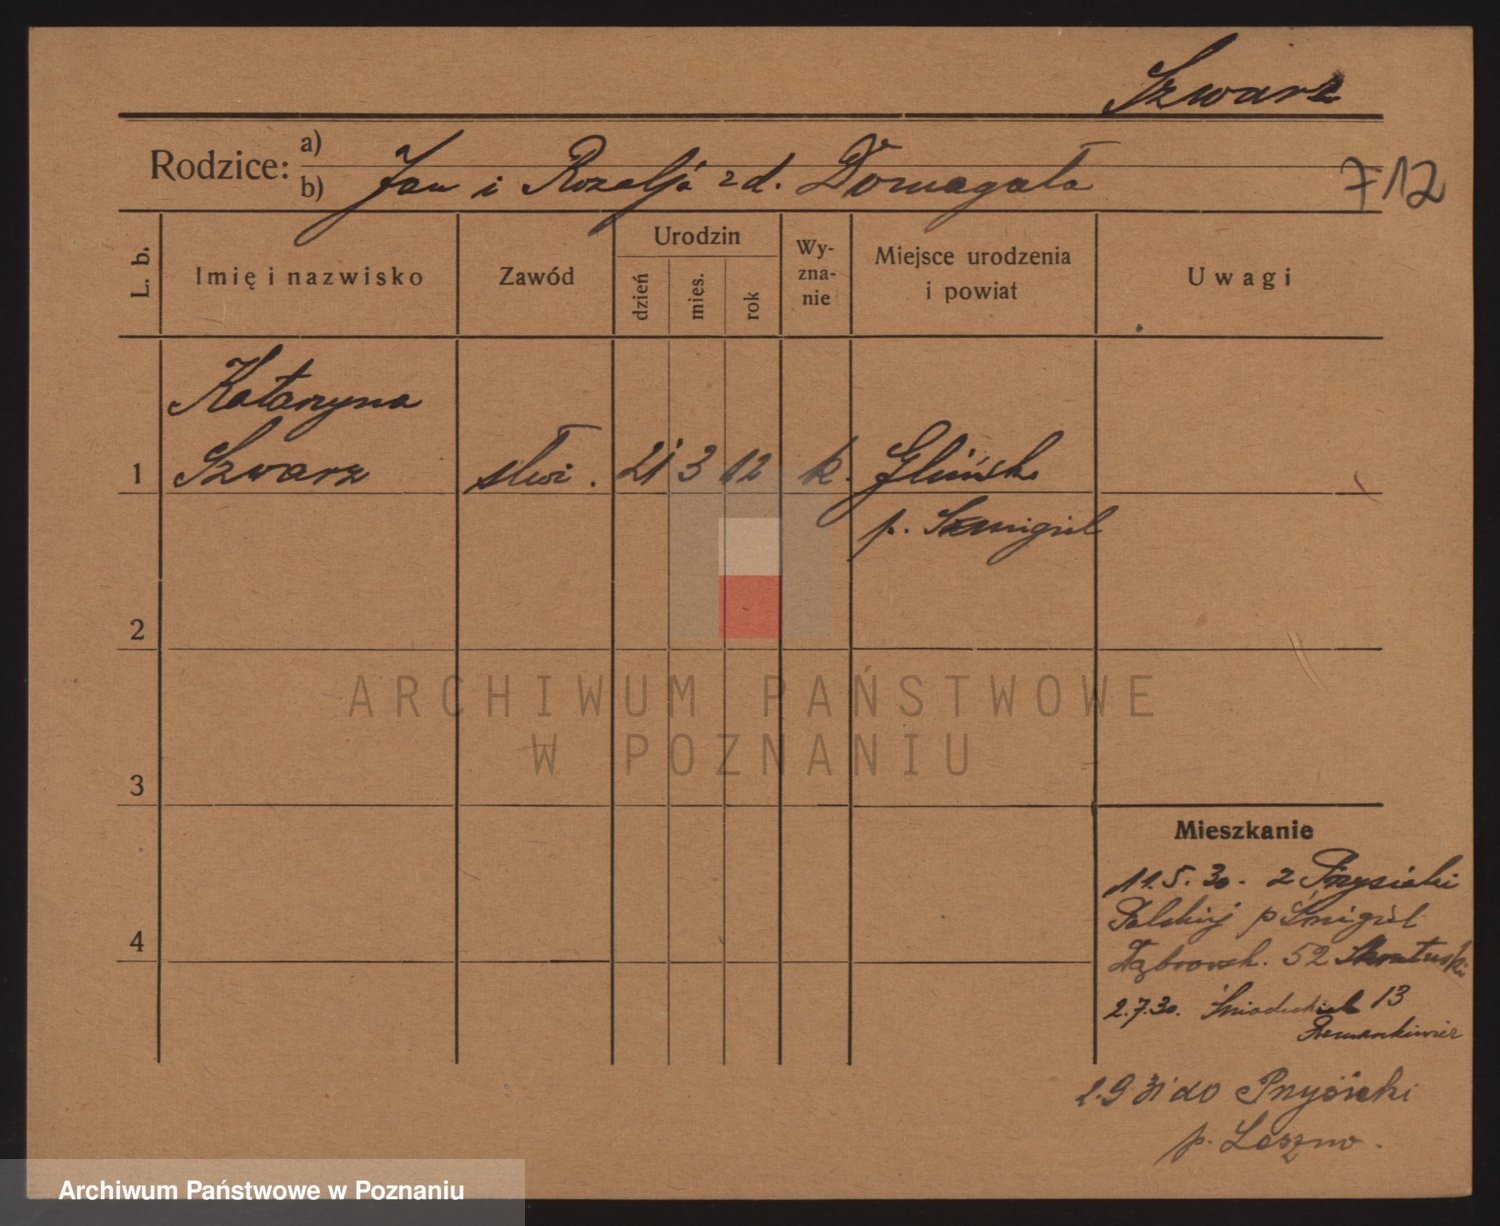 Szwarz
Rodzice: a)
b) Jan i Rozalja zd. Domagała
712
L. b.
Imię i nazwisko
Zawód
Urodzin
dzień
mies.
rok
Wy-
zna-
nie
Miejsce urodzenia
i powiat
Uwagi
Katarzyna
1 Szwarz służ. 21 3 12 k. Glińsk
p. Szmigiel
2
3
4
ARCHIWUM PAŃSTWOWE
W POZNANIU
Mieszkanie
11.5.30. z Przysieki
Polskiej p Śmigiel
Dąbrowsk. 52
2.7.30. Śniadeckich 13
2.9 31 do Przysieki
p. Leszno.
Archiwum Państwowe w Poznaniu